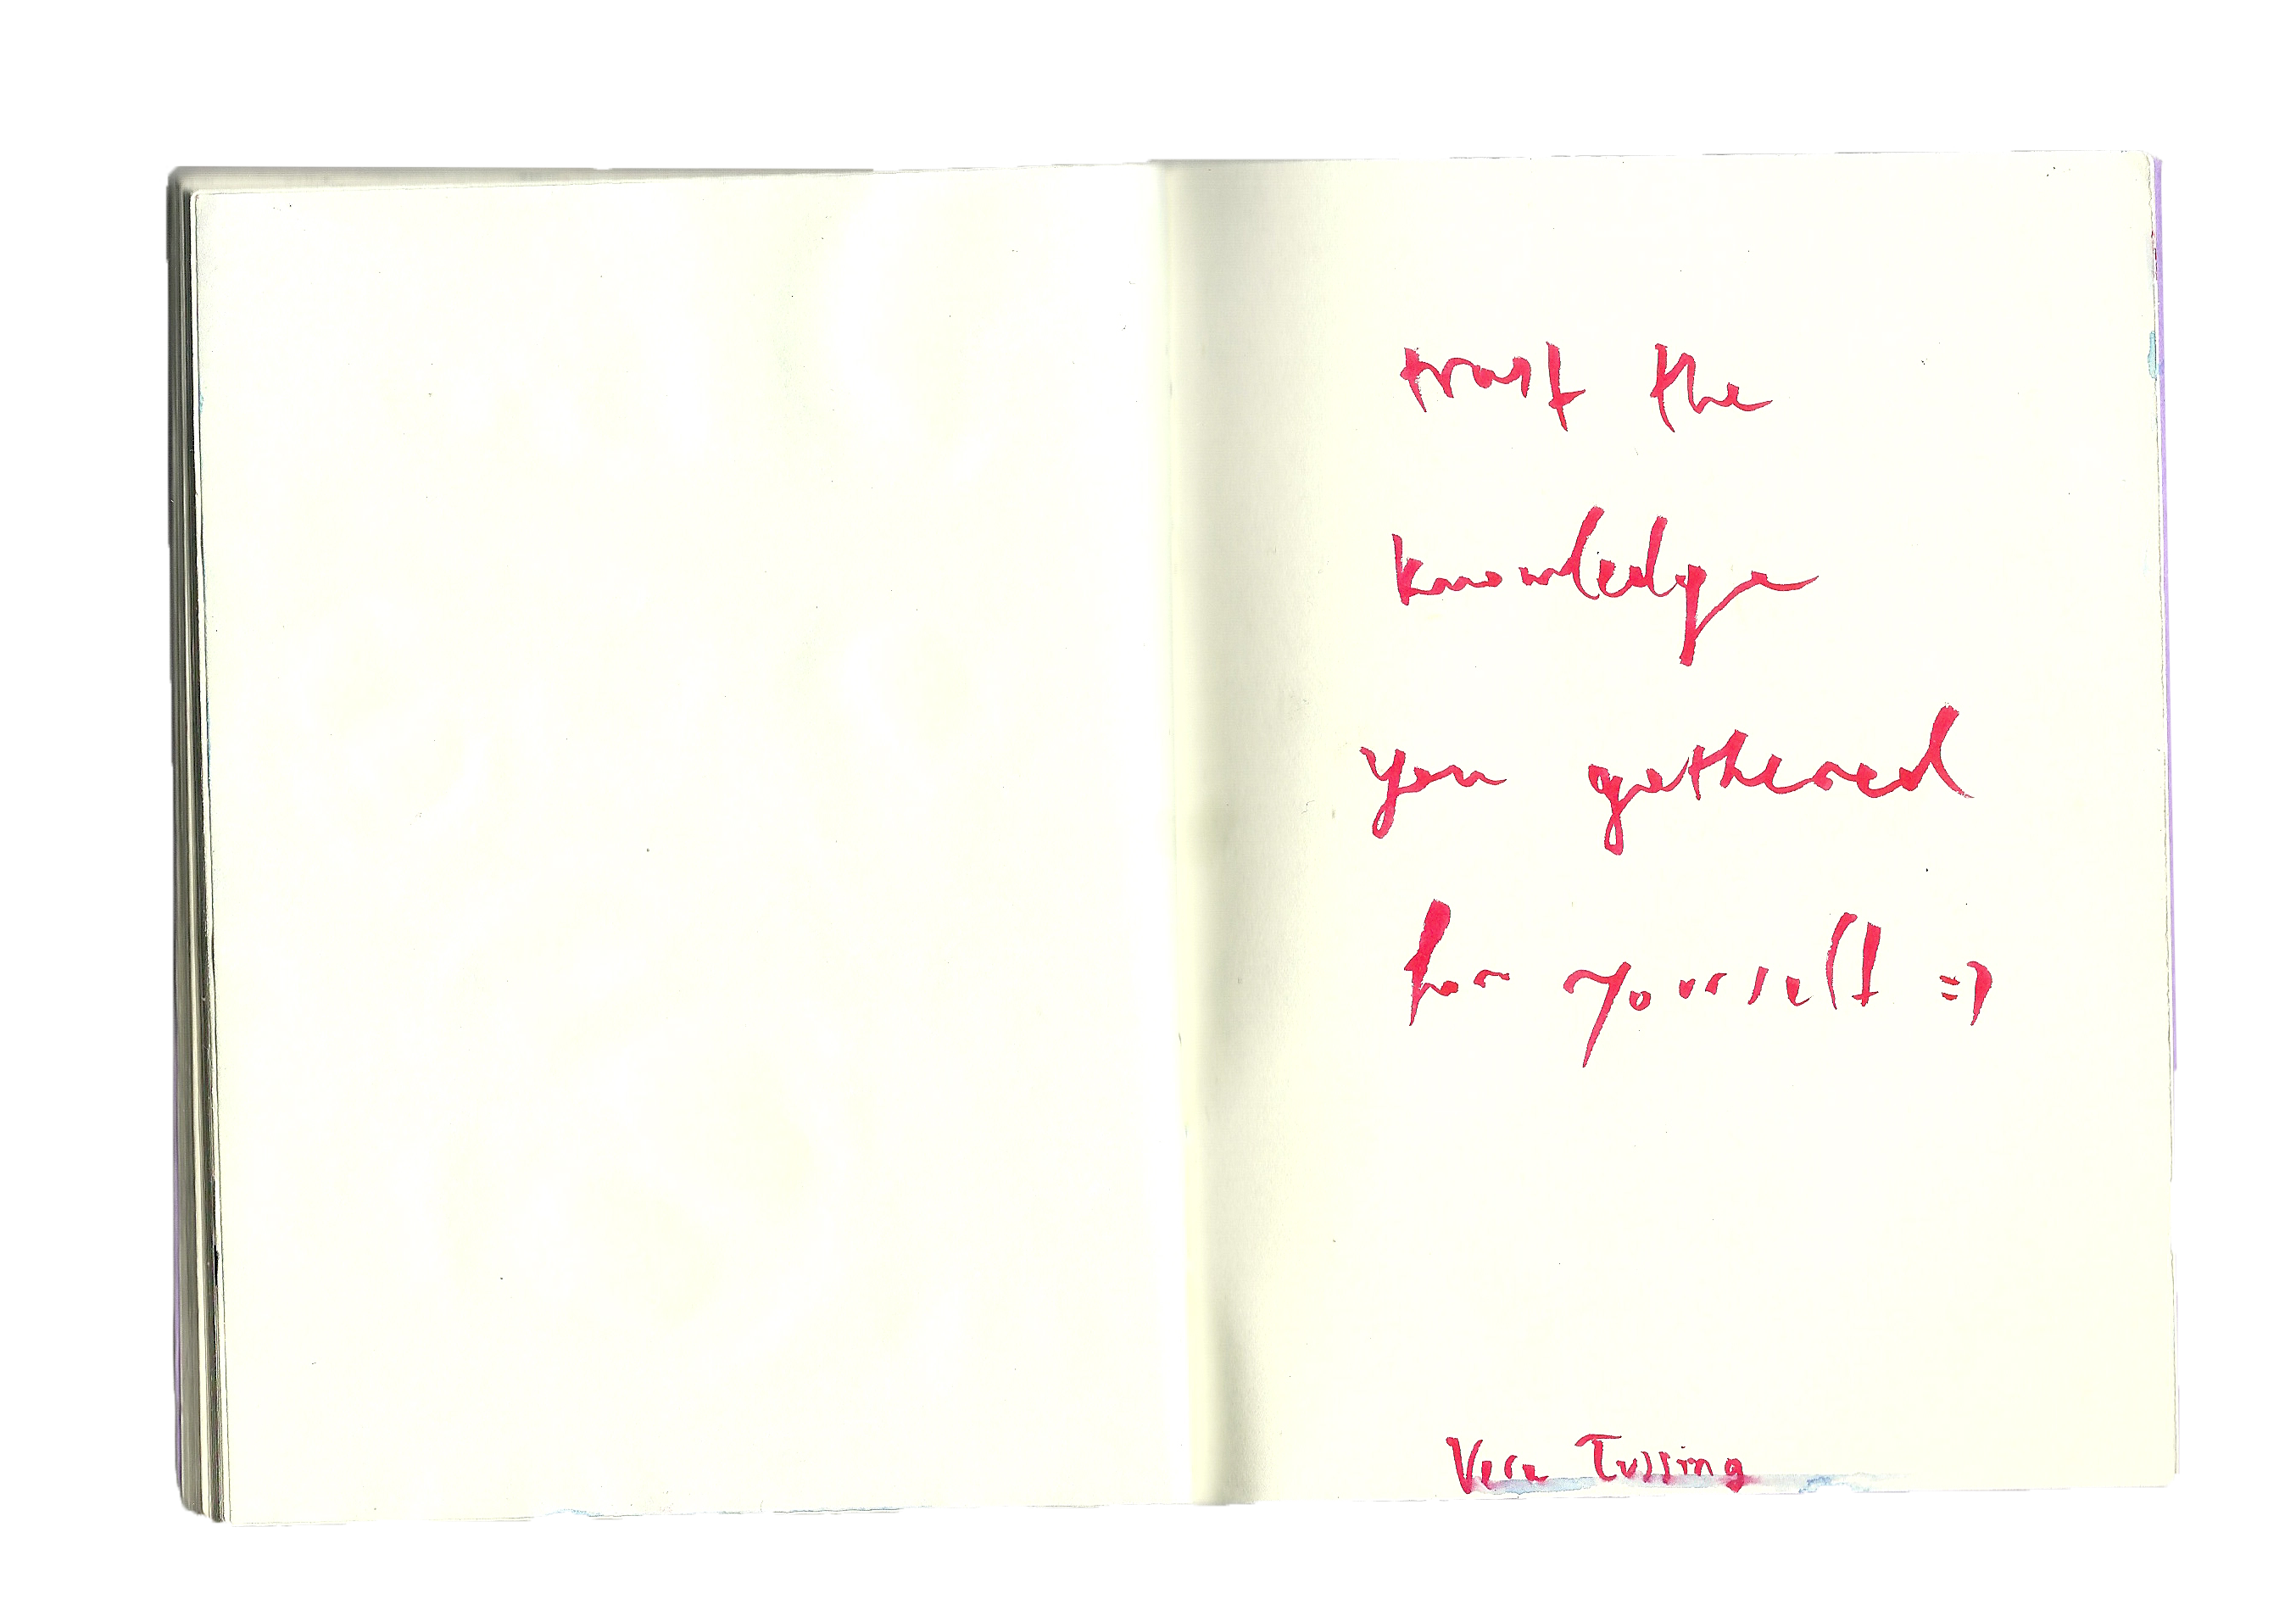 trust the
knowledge
you gathered
for yourself =)
Vera Tussing